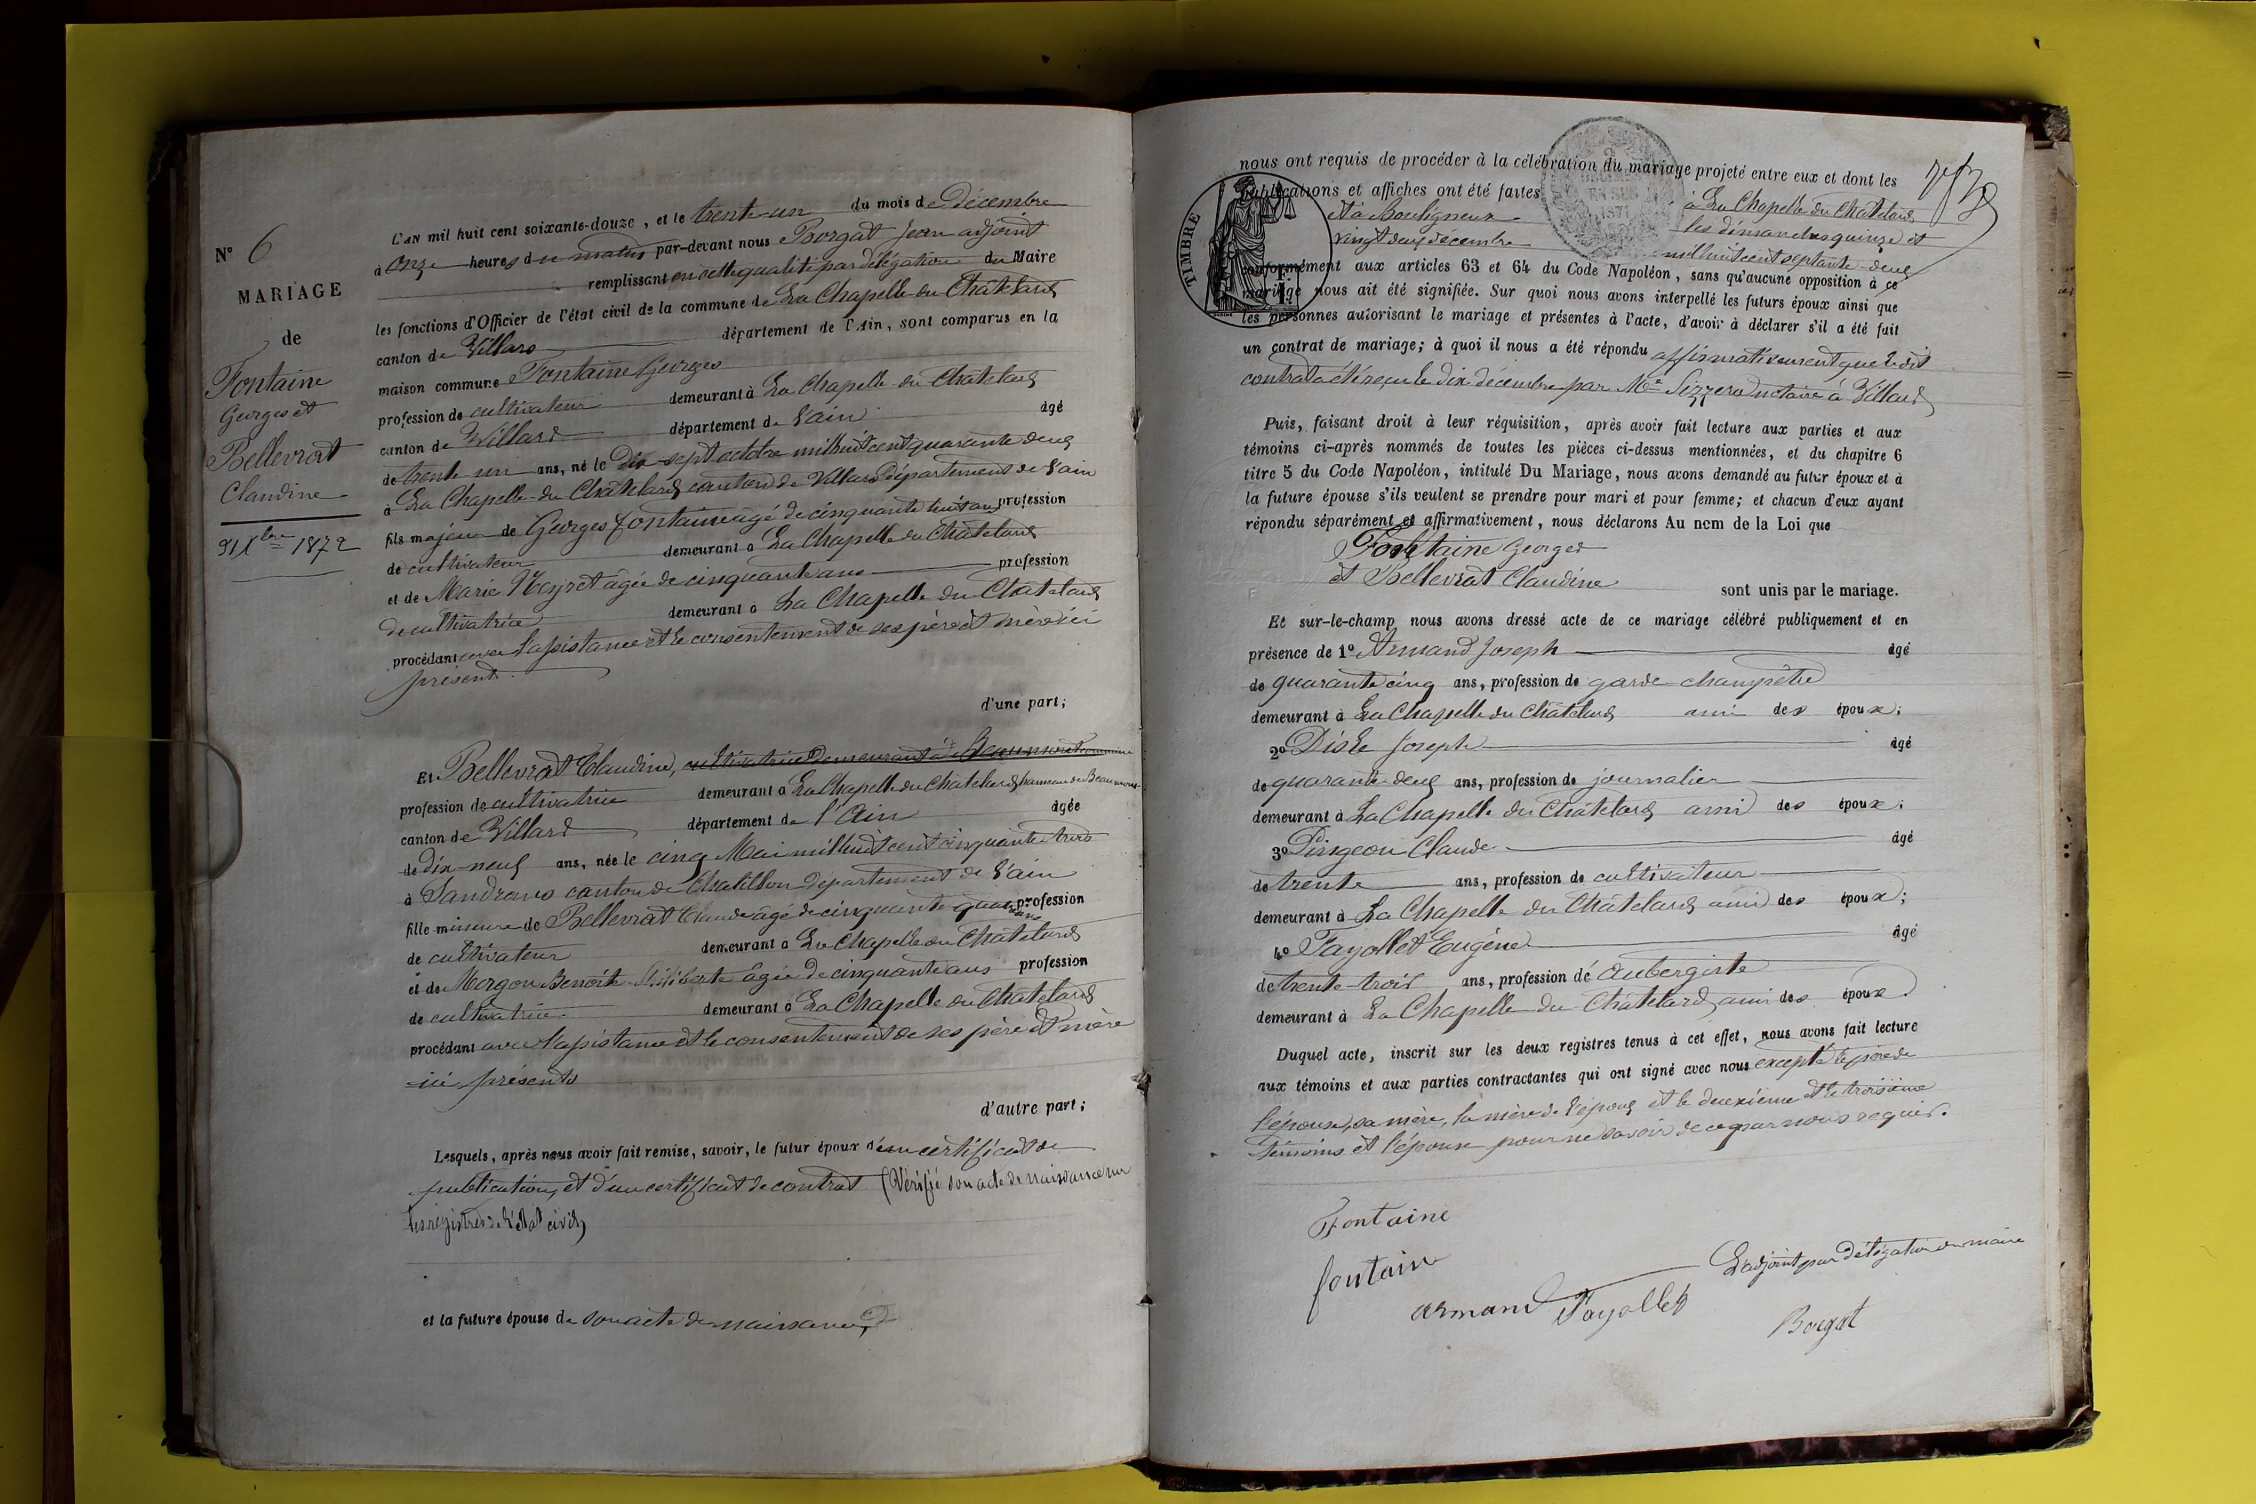 N° 6
MARIAGE
de
Fontaine
Georges et
Bellevrat
Claudine
31 Xbre 1872
L'AN mil huit cent soixante-douze, et le trente-un du mois de Décembre
à onze heures du matin par-devant nous Borgat Jean adjoint
remplissant en cette qualité par délégation du Maire
les fonctions d'Officier de l'état civil de la commune de La Chapelle-du-Châtelard
canton de Villars département de l'Ain, sont comparus en la
maison commune Fontaine Georges
profession de cultivateur demeurant à La Chapelle-du-Châtelard
canton de Villard département de l'ain âgé
de trente un ans, né le Dix-sept octobre mil huit cent quarante deux
à La Chapelle-du-Châtelard canton de Villars Département de l'ain
fils majeur de Georges Fontaine âgé de cinquante huit ans profession
de cultivateur demeurant à La Chapelle du Châtelard
et de Marie Neyret âgée de cinquante ans profession
de cultivatrice demeurant à La Chapelle du Châtelard
procédant avec l'assistance et le consentement de ses père et mère ici
présents
d'une part;
Et Bellevrat Claudine, cultivatrice demeurant à Beaumont commune
profession de cultivatrice demeurant à La Chapelle du Châtelard hameau de Beaumont
canton de Villard département de l'Ain âgée
de dix-neuf ans, née le cinq Mai mil huit cent cinquante-trois
à Sandrans canton de Chatillon Département de l'ain
fille mineure de Bellevrat Claude âgé de cinquante quatre ans profession
de cultivateur demeurant à La Chapelle du Châtelard
et de Morgon Benoite Philiberte âgée de cinquante ans profession
de cultivatrice demeurant à La Chapelle du Châtelard
procédant avec l'assistance et le consentement de ses père et mère
ici présents
d'autre part;
Lesquels, après nous avoir fait remise, savoir, le futur époux d'un certificat de
publication, et d'un certificat de contrat (Vérifié son acte de naissance sur
les registres de l'état civil)
et la future épouse de son acte de naissance,
nous ont requis de procéder à la célébration du mariage projeté entre eux et dont les
publications et affiches ont été faites à La Chapelle du Châtelard
et à Bouligneux les dimanches quinze et
vingt deux décembre mil huit cent septante-deux
TIMBRE
1871
conformément aux articles 63 et 64 du Code Napoléon, sans qu'aucune opposition à ce
mariage nous ait été signifiée. Sur quoi nous avons interpellé les futurs époux ainsi que
les personnes autorisant le mariage et présentes à l'acte, d'avoir à déclarer s'il a été fait
un contrat de mariage; à quoi il nous a été répondu affirmativement que ledit
contrat a été reçu le dix décembre par Me notaire à Villard
Puis, faisant droit à leur réquisition, après avoir fait lecture aux parties et aux
témoins ci-après nommés de toutes les pièces ci-dessus mentionnées, et du chapitre 6
titre 5 du Code Napoléon, intitulé Du Mariage, nous avons demandé au futur époux et à
la future épouse s'ils veulent se prendre pour mari et pour femme; et chacun d'eux ayant
répondu séparément et affirmativement, nous déclarons Au nom de la Loi que
Fontaine Georges
et Bellevrat Claudine
sont unis par le mariage.
Et sur-le-champ nous avons dressé acte de ce mariage célébré publiquement et en
présence de 1° Armand Joseph âgé
de quarante cinq ans, profession de garde-champêtre
demeurant à La Chapelle du Châtelard ami des époux;
2° Joseph âgé
de quarante-deux ans, profession de journalier
demeurant à La Chapelle du Châtelard ami des époux;
3° Pingeon Claude âgé
de trente ans, profession de cultivateur
demeurant à La Chapelle du Châtelard ami des époux;
4° Fayollet Eugène âgé
de trente-trois ans, profession de aubergiste
demeurant à La Chapelle du Châtelard, ami des époux.
Duquel acte, inscrit sur les deux registres tenus à cet effet, nous avons fait lecture
aux témoins et aux parties contractantes qui ont signé avec nous excepté le père de
l'épouse, sa mère, la mère de l'époux et le deuxième et le troisième
témoins et l'épouse pour ne savoir de ce par nous requis.
Fontaine
fontaine
armand Fayollet
L'adjoint par délégation du maire
Borgat